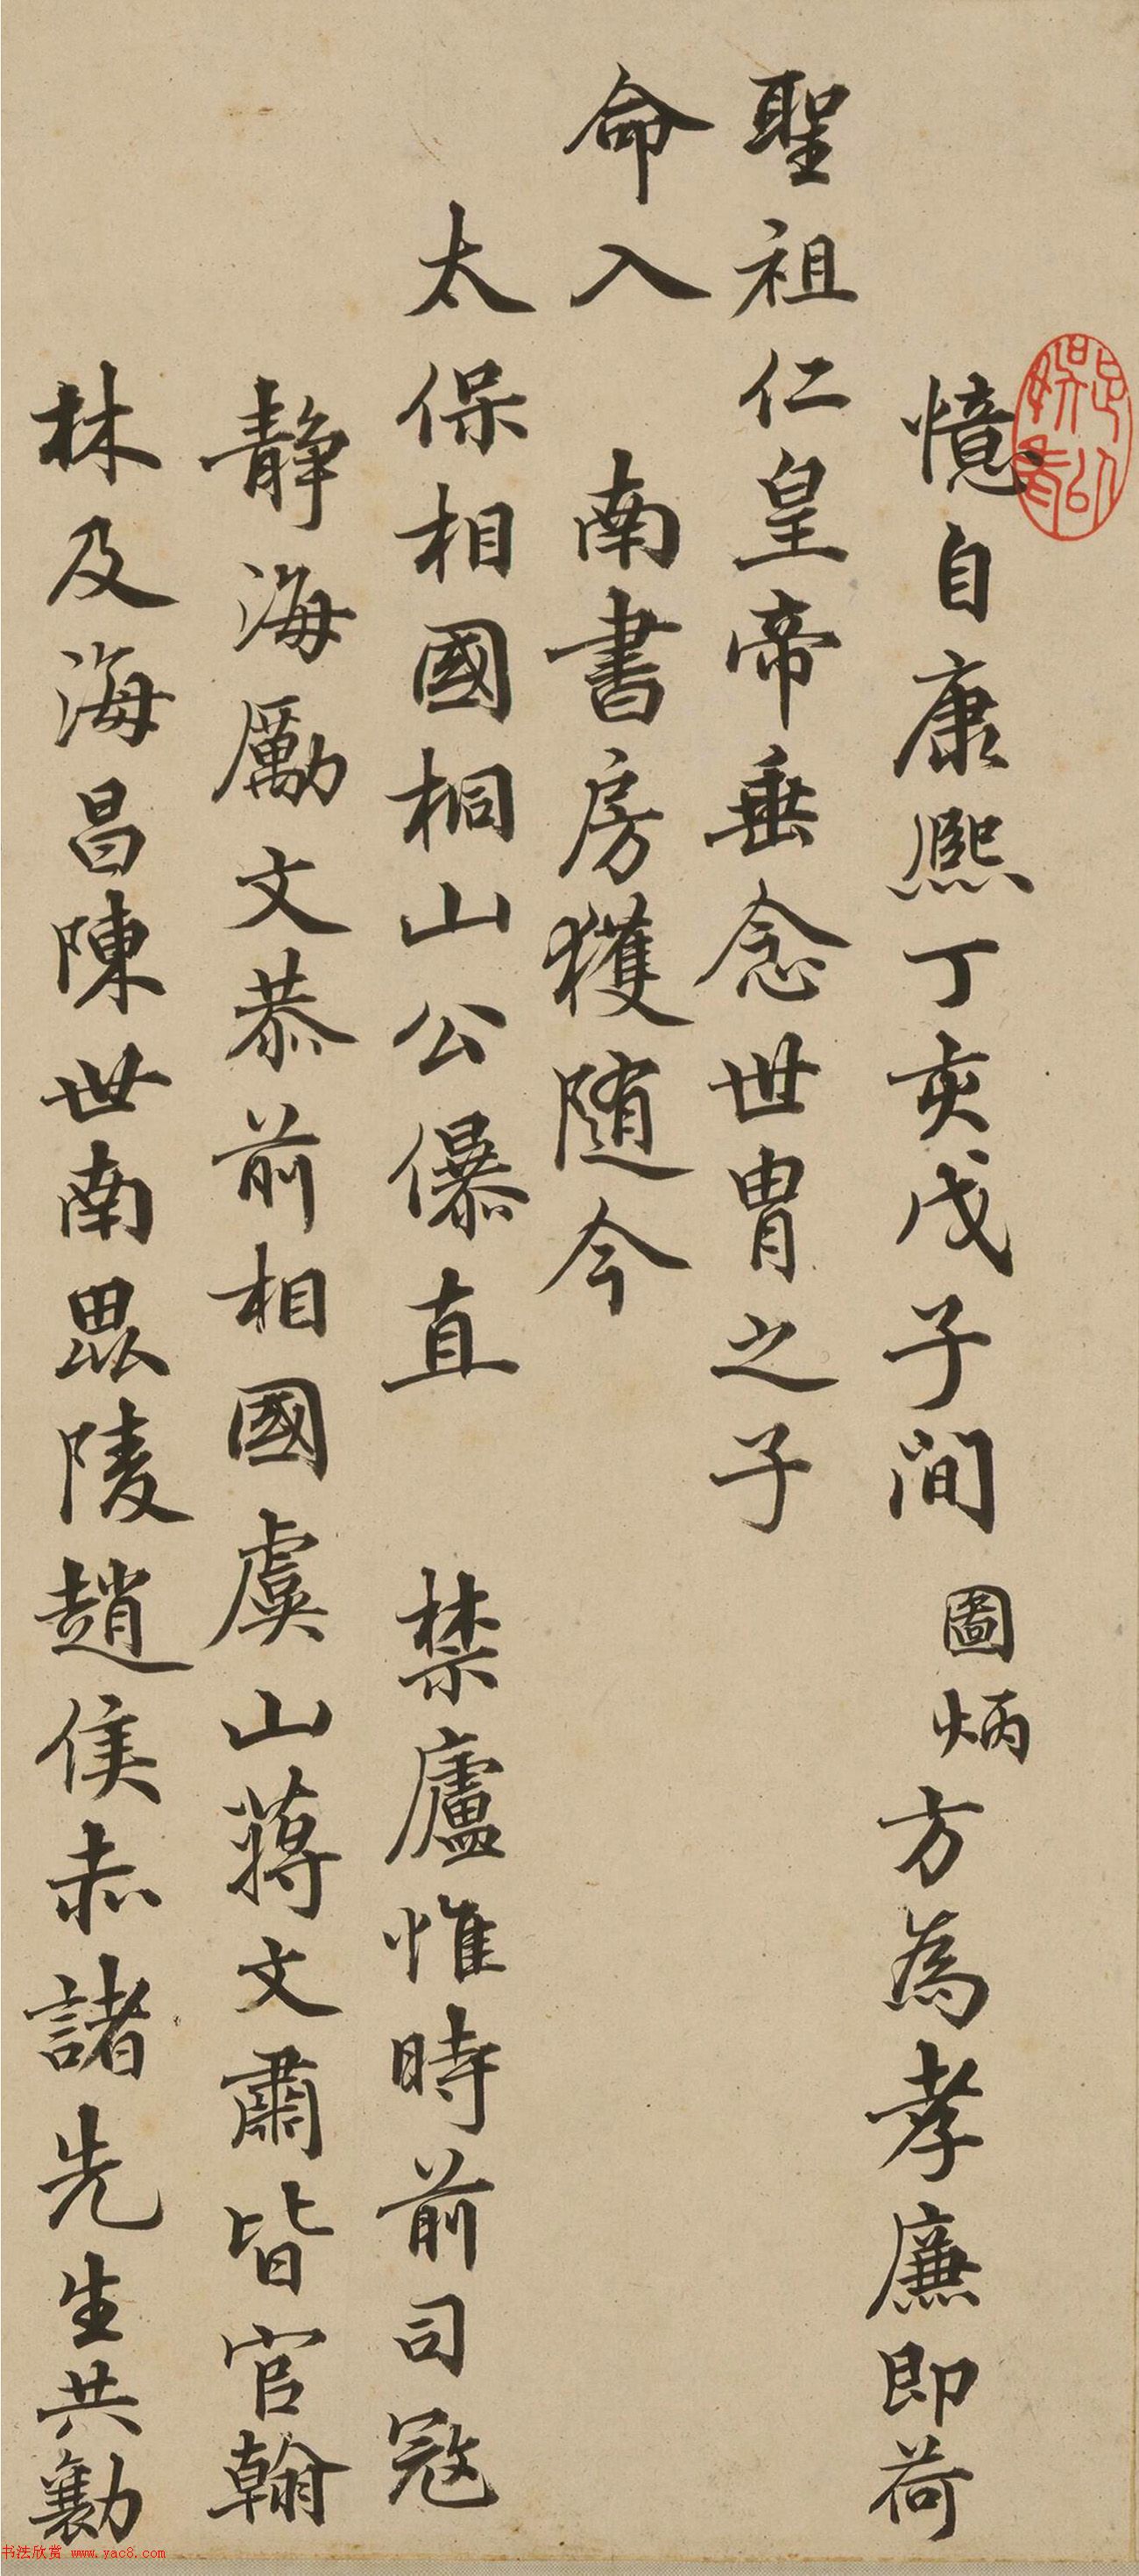 憶自康熙丁亥戊子間圖炳方為孝廉即荷
聖祖仁皇帝垂念世胄之子
命入 南書房獲随今
太保相國桐山公儤直 禁廬惟時前司寇
靜海勵文恭前相國虞山蔣文肅皆官翰
林及海昌陳世南毘陵趙侯赤諸先生共勷
书法欣赏 www.yac8.com